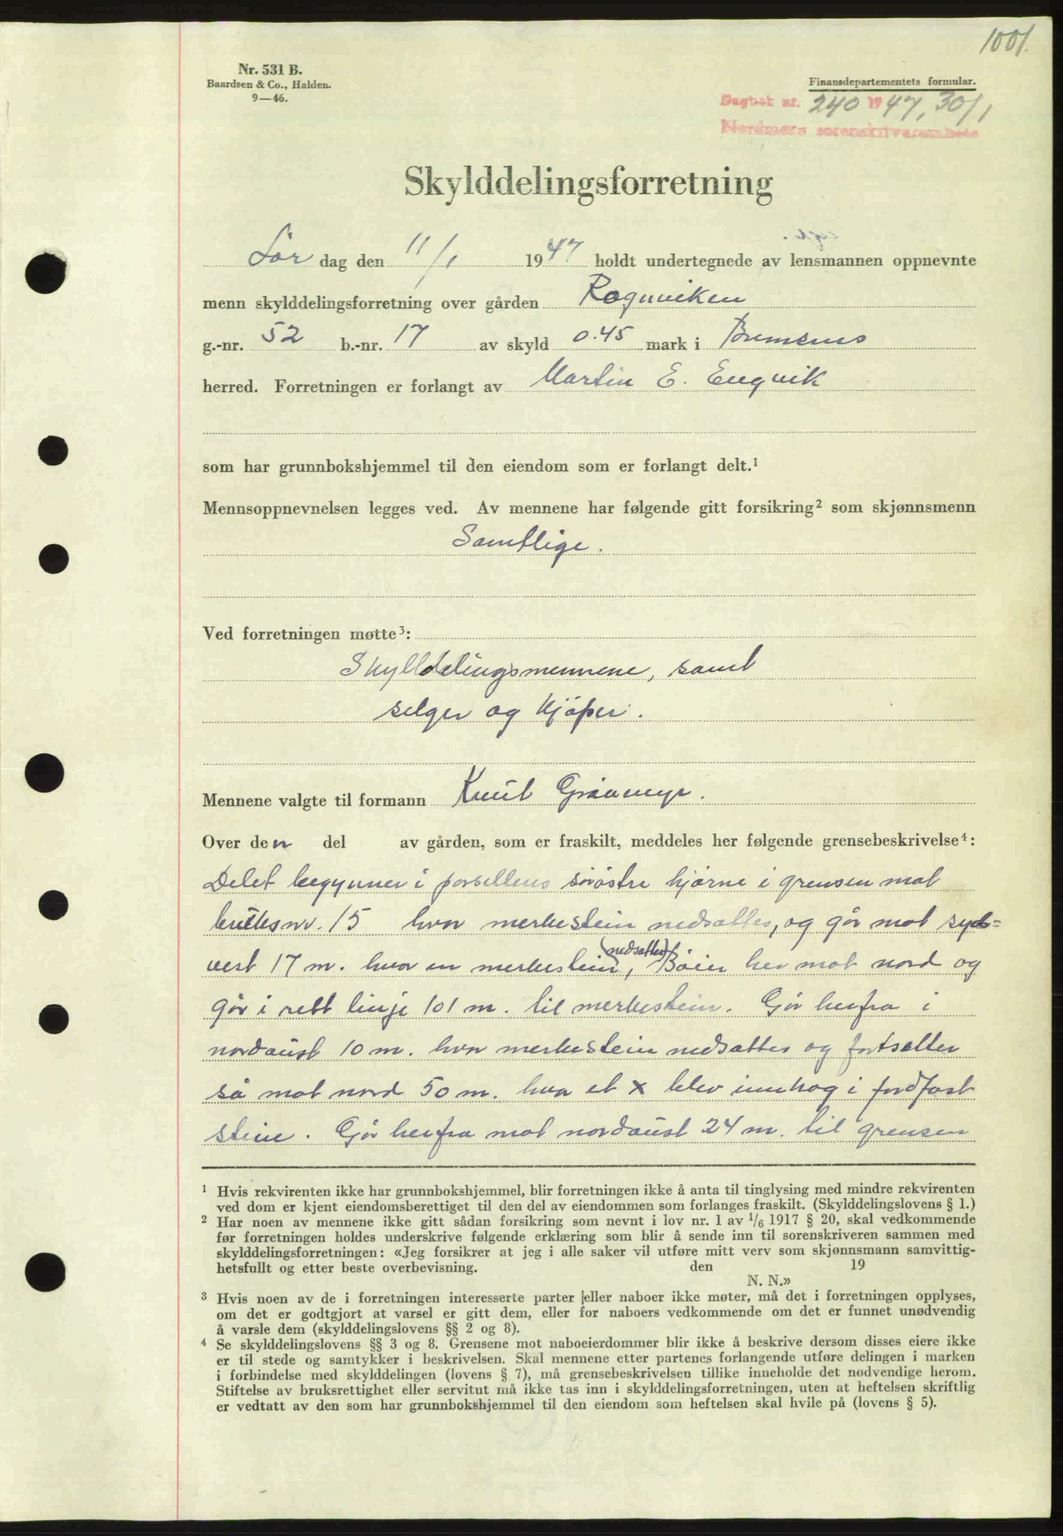 1001.
Nr. 531 B.
Baardsen & Co., Halden.
9—46.
Finansdepartementets formular.
Dagbok nr. 240 1947, 30/1
Nordmøre sorenskriverembete
Skylddelingsforretning
Lør dag den 11/1 1947 holdt undertegnede av lensmannen oppnevnte
menn skylddelingsforretning over gården Rognviken
g.-nr. 52 b.-nr. 17 av skyld 0.45 mark i Bremsnes
herred. Forretningen er forlangt av Martin E. Engvik
som har grunnbokshjemmel til den eiendom som er forlangt delt.¹
Mennsoppnevnelsen legges ved. Av mennene har følgende gitt forsikring² som skjønnsmenn
Samtlige.
Ved forretningen møtte³:
Skylldelingsmennene, samt
selger og kjøper.
Mennene valgte til formann Knut Gråmyr.
Over den del av gården, som er fraskilt, meddeles her følgende grensebeskrivelse⁴:
Delet begynner i parsellens söröstre hjörne i grensen mot
bruksnr. 15 hvor merkestein nedsattes, og går mot syd-
vest 17 m. hvor en merkestein (nedsattes), Böier her mot nord og
går i rett linje 101 m. til merkestein. Går herfra i
nordaust 10 m. hvor merkestein nedsattes og fortsetter
så mot nord 50 m. hvor et x blev innhog i jordfast
stein. Går herfra mot nordaust 24 m. til grensen
¹ Hvis rekvirenten ikke har grunnbokshjemmel, blir forretningen ikke å anta til tinglysing med mindre rekvirenten
ved dom er kjent eiendomsberettiget til den del av eiendommen som forlanges fraskilt. (Skylddelingslovens § 1.)
² Har noen av mennene ikke gitt sådan forsikring som nevnt i lov nr. 1 av 1/6 1917 § 20, skal vedkommende
før forretningen holdes underskrive følgende erklæring som blir å sende inn til sorenskriveren sammen med
skylddelingsforretningen: «Jeg forsikrer at jeg i alle saker vil utføre mitt verv som skjønnsmann samvittig-
hetsfullt og etter beste overbevisning. den 19
N. N.»
³ Hvis noen av de i forretningen interesserte parter eller naboer ikke møter, må det i forretningen opplyses,
om det er godtgjort at varsel er gitt dem, eller for naboers vedkommende om det er funnet unødvendig
å varsle dem (skylddelingslovens §§ 2 og 8).
⁴ Se skylddelingslovens §§ 3 og 8. Grensene mot naboeierdommer blir ikke å beskrive dersom disses eiere ikke
er til stede og samtykker i beskrivelsen. Skal mennene etter partenes forlangende utføre delingen i marken
i forbindelse med skylddelingen (lovens § 7), må grensebeskrivelsen tillike inneholde det nødvendige herom.
Stiftelse av bruksrettighet eller servitut må ikke tas inn i skylddelingsforretningen, uten at heftelsen skriftlig
er vedtatt av den som har grunnbokshjemmel til den eiendom som heftelsen skal hvile på (lovens § 5).